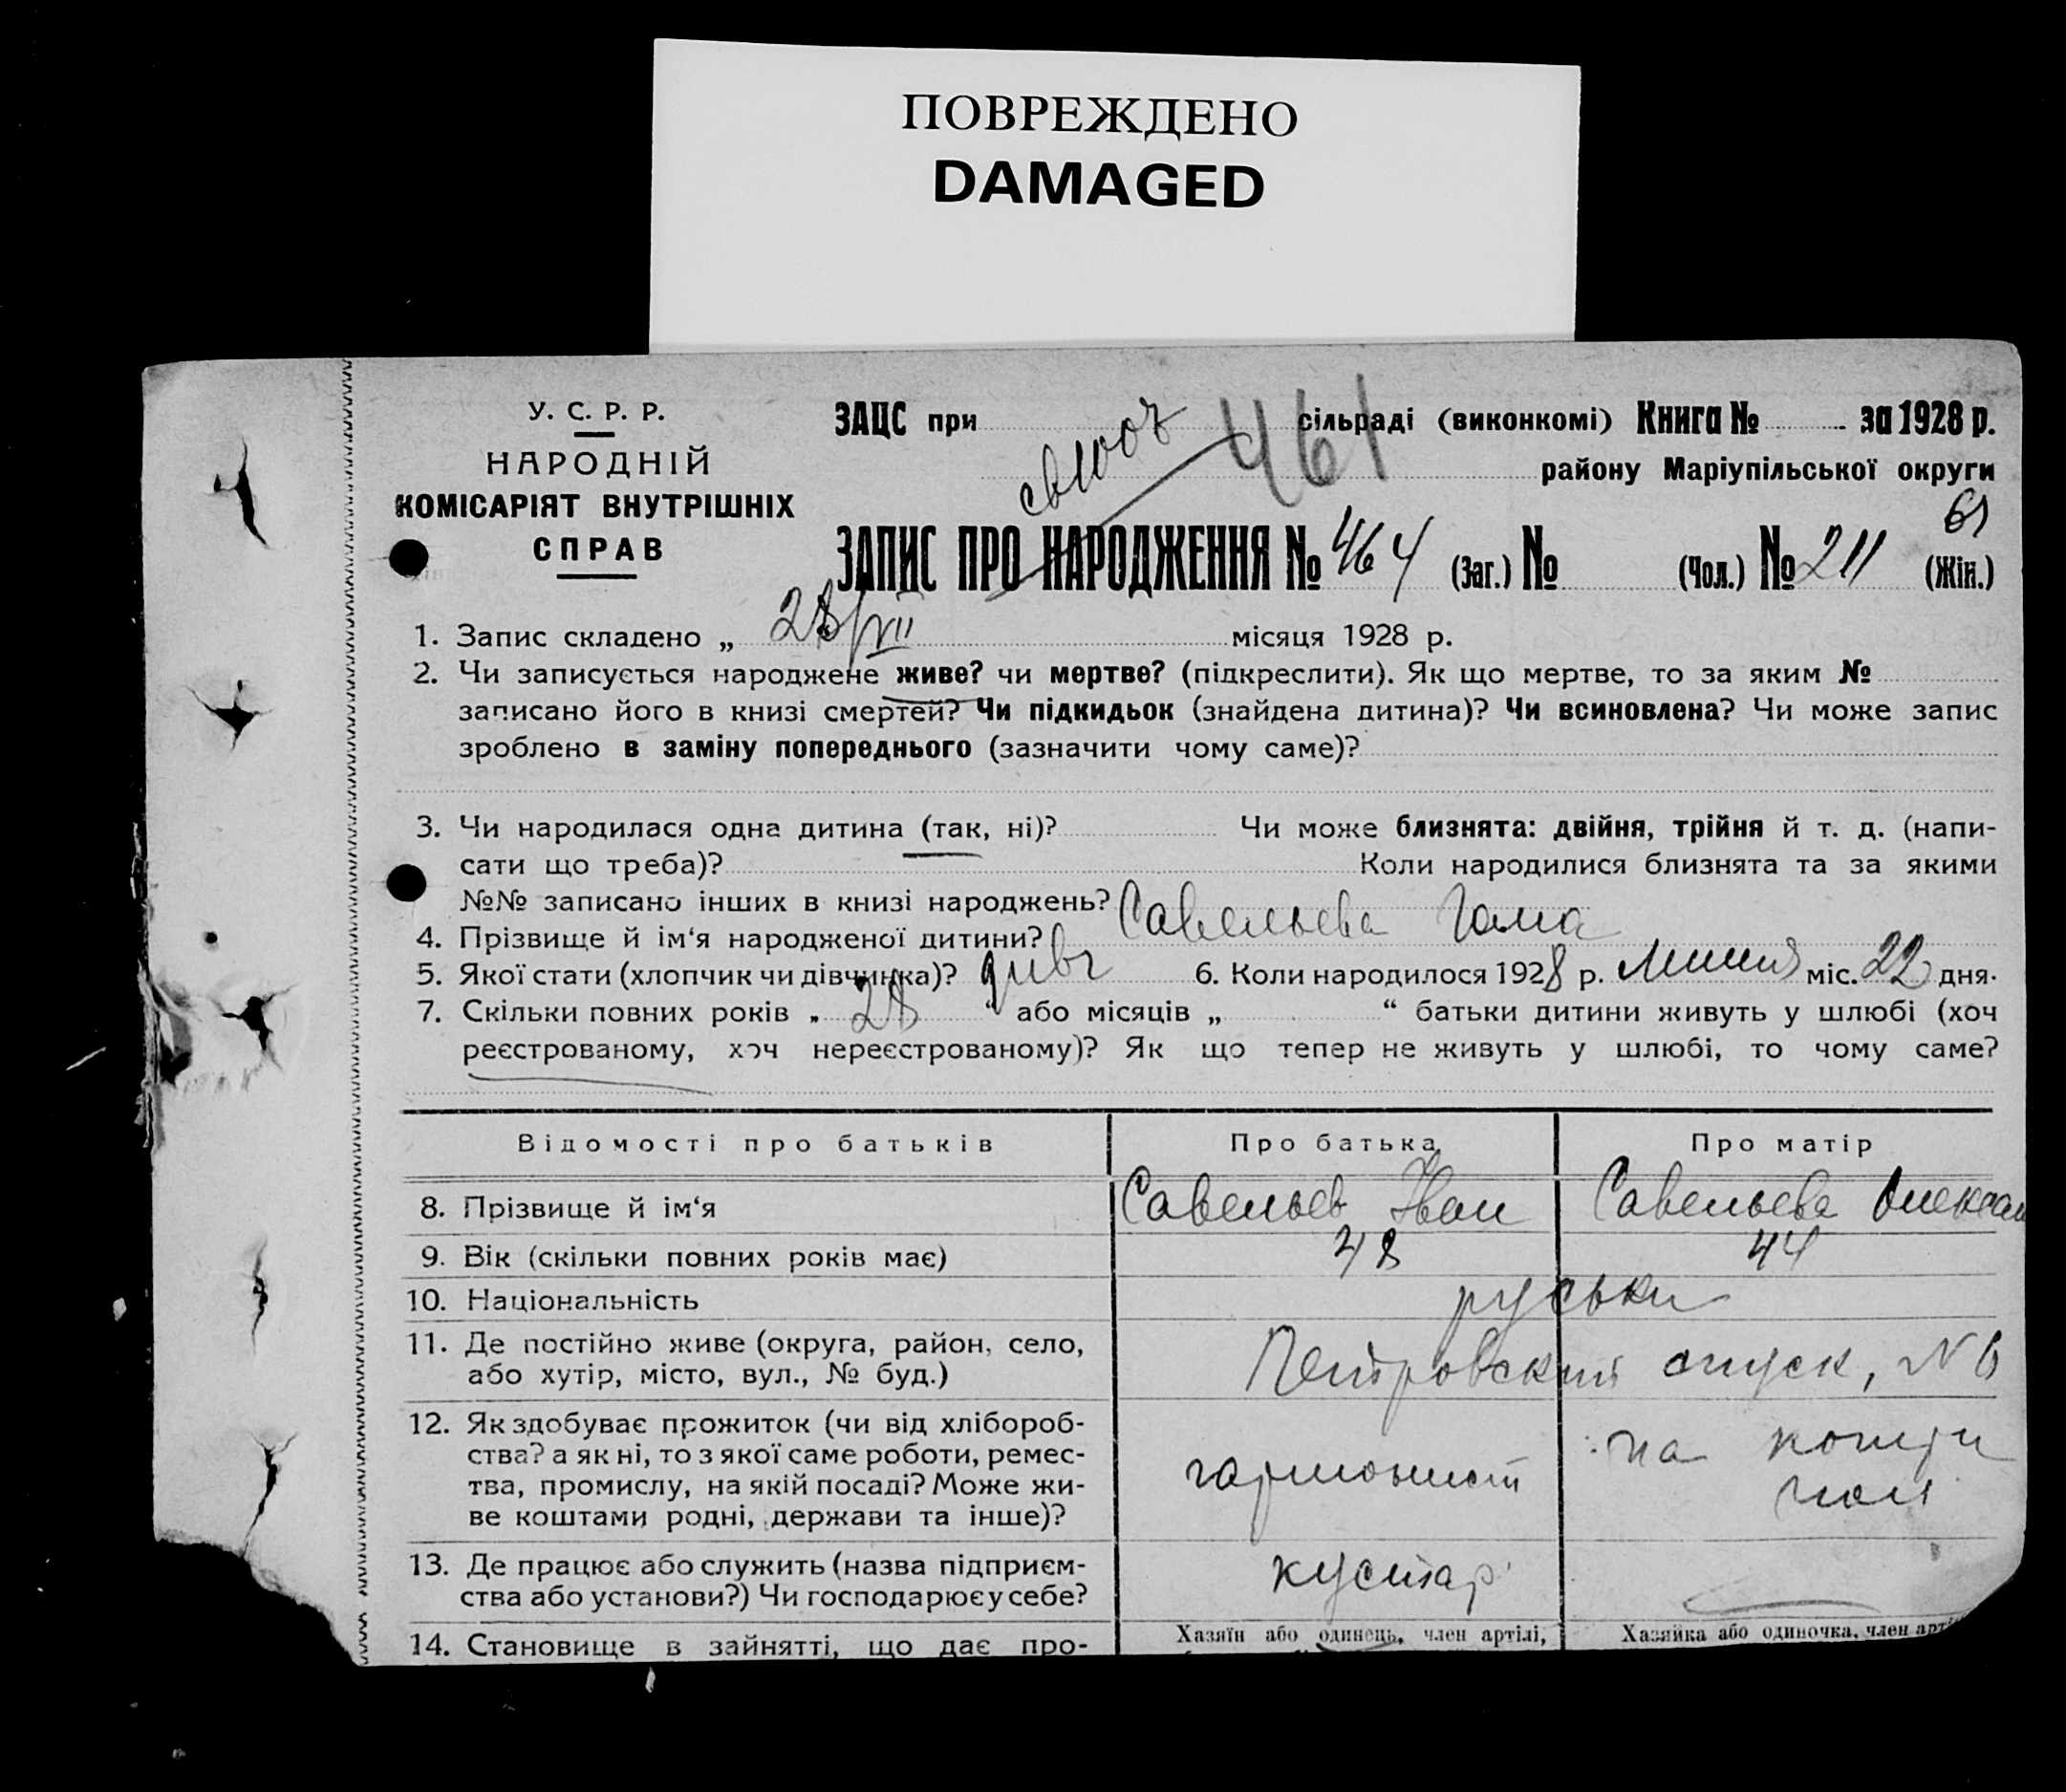 ПОВРЕЖДЕНО
DAMAGED
У. С. Р. Р.
НАРОДНІЙ
КОМІСАРІЯТ ВНУТРІШНІХ
СПРАВ
ЗАЦС при сільраді (виконкомі) Книга № за 1928 р.
461
району Маріупільської округи
61
ЗАПИС ПРО НАРОДЖЕННЯ № 464 (Заг.) № (Чол.) № 211 (Жін.)
1. Запис складено „ 28/VII місяця 1928 р.
2. Чи записується народжене живе? чи мертве? (підкреслити). Як що мертве, то за яким №
записано його в книзі смертей? Чи підкидьок (знайдена дитина)? Чи всиновлена? Чи може запис
зроблено в заміну попереднього (зазначити чому саме)?
3. Чи народилася одна дитина (так, ні)? Чи може близнята: двійня, трійня й т. д. (напи-
сати що треба)? Коли народилися близнята та за якими
№№ записано інших в книзі народжень?
4. Прізвище й ім‘я народженої дитини? Савельева
5. Якої стати (хлопчик чи дівчинка)? дивч 6. Коли народилося 1928 р. Липня міс. 22 дня.
7. Скільки повних років „ 28 “ або місяців „ “ батьки дитини живуть у шлюбі (хоч
реєстрованому, хоч нереєстрованому)? Як що тепер не живуть у шлюбі, то чому саме?
Відомості про батьків Про батька Про матір
8. Прізвище й ім‘я Савельев Иван Савельева Олексан
9. Вік (скільки повних років має) 48 44
10. Національність руськи
11. Де постійно живе (округа, район, село, Петровский спуск, N 6
або хутір, місто, вул., № буд.)
12. Як здобуває прожиток (чи від хлібороб-
ства? а як ні, то з якої саме роботи, ремес- на
тва, промислу, на якій посаді? Може жи- гармонист
ве коштами родні, держави та інше)?
13. Де працює або служить (назва підприєм- кустар
ства або установи?) Чи господарює у себе?
14. Становище в зайнятті, що дає про- Хазяїн або одинець, член артілі, Хазяйка або одиночка, член арті